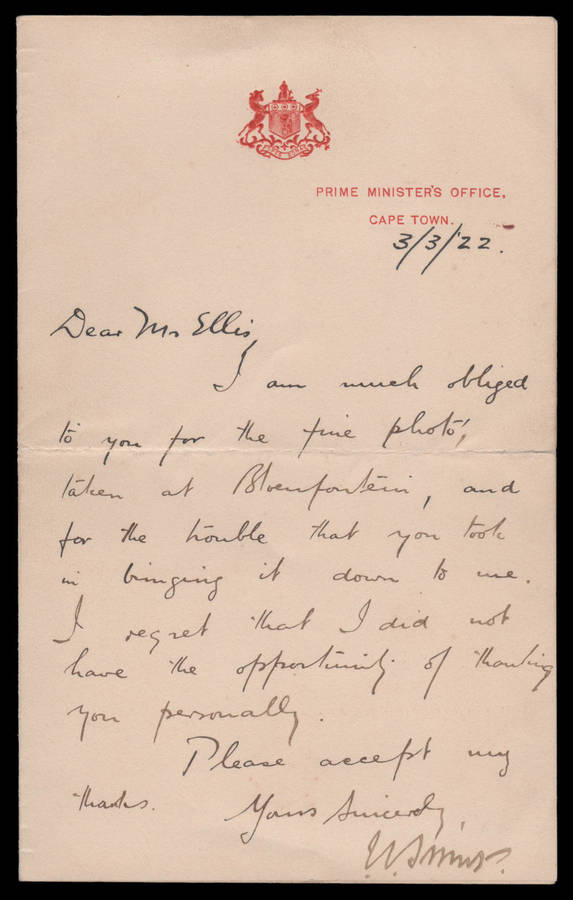 PRIME MINISTER'S OFFICE,
CAPE TOWN.
3/3/'22.
Dear Mr Ellis,
I am much obliged
to you for the fine photo',
taken at Bloemfontein, and
for the trouble that you took
in bringing it down to me.
I regret that I did not
have the opportunity of thanking
you personally.
Please accept my
thanks. Yours Sincerely,